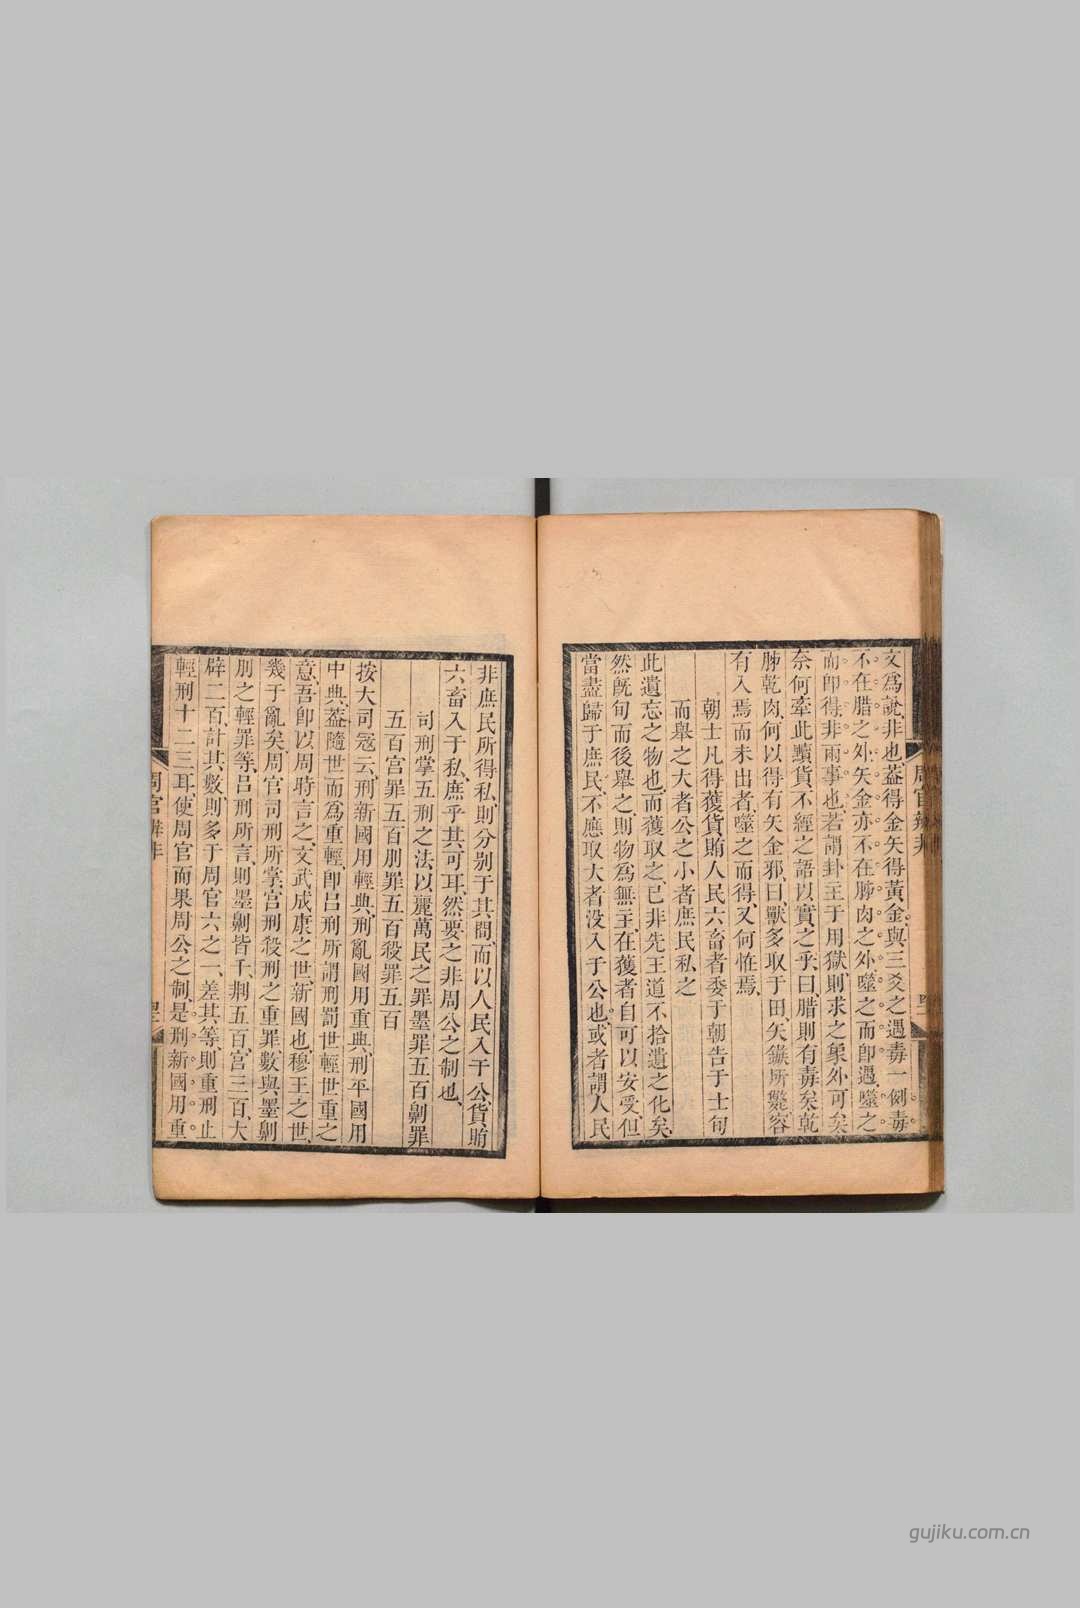 文爲說非也蓋得金矢得黃金與三爻之遇毒一例毒
不在腊之外矢金亦不在胏肉之外噬之而卽遇噬之
而卽得非兩事也若謂卦主于用獄則求之象外可矣
奈何牽此黷貨不經之語以實之乎曰腊則有毒矣乾
胏乾肉何以得有矢金邪曰獸多取于田矢鏃所斃容
有入焉而未出者噬之而得又何恠焉
朝士凡得獲貨賄人民六畜者委于朝告于士旬
而舉之大者公之小者庶民私之
此遺忘之物也而獲取之已非先王道不拾遺之化矣
然旣旬而後舉之則物爲無主在獲者自可以安受但
當盡歸于庶民不應取大者没入于公也或者謂人民
周官辨非
非庶民所得私則分别于其間而以人民入于公貨賄
六畜入于私庶乎其可耳然要之非周公之制也
司刑掌五刑之法以麗萬民之罪墨罪五百劓罪
五百宫罪五百刖罪五百殺罪五百
按大司寇云刑新國用輕典刑亂國用重典刑平國用
中典蓋隨世而爲重輕卽吕刑所謂刑罰世輕世重之
意吾卽以周時言之文武成康之世新國也穆王之世
幾于亂矣周官司刑所掌宫刑殺刑之重罪數與墨劓
刖之輕罪等吕刑所言則墨劓皆千荆五百宫三百大
辟二百計其數則多于周官六之一差其等則重刑止
輕刑十二三耳使周官而果周公之制是刑新國用重
周官辨非